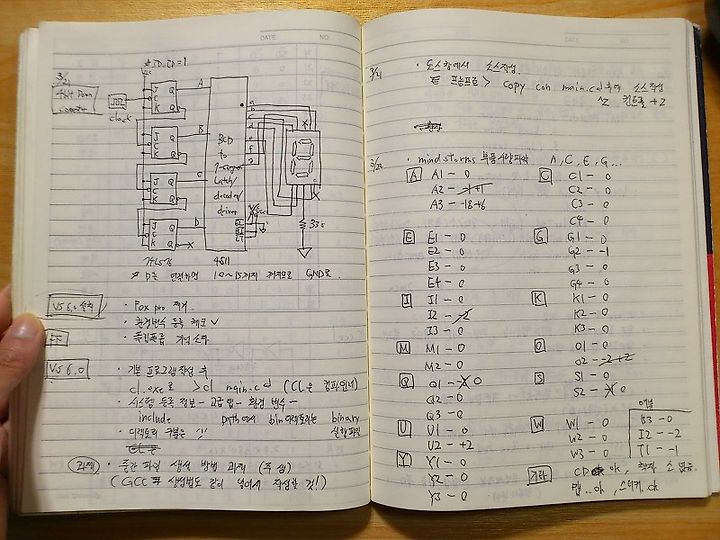 DATE NO.
3/21
4bit Down Counter
Vcc
clock
J Q
C
K Q
A
J Q
C
K Q
B
J Q
C
K Q
C
J Q
C
K Q
D
BCD
to
7-segment
latch/
decoder/
driver
4511
VS 6.0 설치
· Fox pro 제거
· 환경변수 등록 체크 ✓
VS 6.0
· 기본 프로그램 작성 후
cl.exe로 >cl main.c (CL은 컴파일러)
· 시스템 등록 정보 - 고급 탭 - 환경 변수 -
include path에서 bin디렉토리는 binary
실행파일
· 디렉토리 구분은 ';'
과제 · 중간 파일 생성 방법 과제
(GCC 생성법도 같이 넣어서 작성할 것!)
DATE NO.
3/21 · 도스창에서 소스작성.
copy con main.c 소스작성
^Z 컨트롤+Z
· mindstorms 부품사항파악 A, C, E, G...
A A1 - 0
A2 - +1
A3 - -18+6
C C1 - 0
C2 - 0
C3 - 0
C4 - 0
E E1 - 0
E2 - 0
E3 - 0
E4 - 0
G G1 - 0
G2 - -1
G3 - 0
G4 - 0
I I1 - 0
I2 - -2
I3 - 0
K K1 - 0
K2 - 0
K3 - 0
M M1 - 0
M2 - 0
O O1 - 0
O2 - -2+2
Q Q1 - 0
Q2 - 0
Q3 - 0
S S1 - 0
S2 - 0
U U1 - 0
U2 - +2
W W1 - 0
W2 - 0
W3 - 0
Y Y1 - 0
Y2 - 0
Y3 - 0
B3 - 0
I2 - -2
T1 - -1
기타 CD ok, 책자 소 없음
맵..ok, 스티커.ok